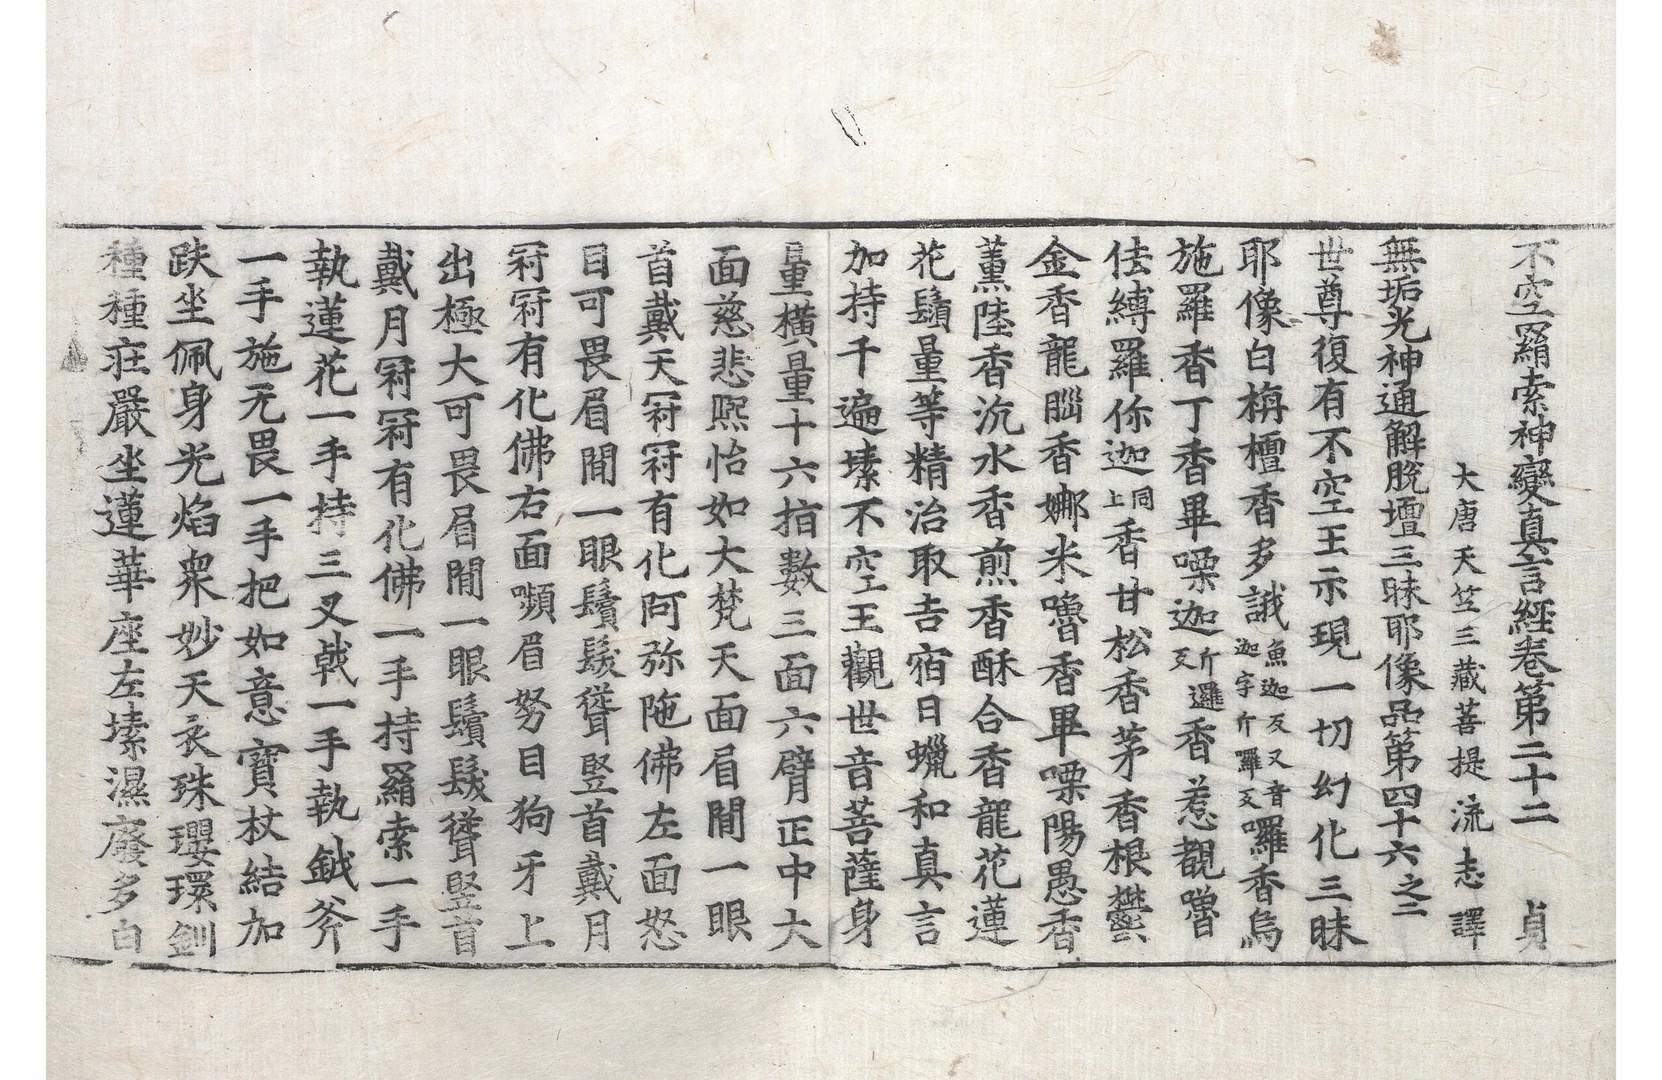 不空羂索神變真言經卷第二十二 貞
大唐天笁三藏菩提流志譯
無垢光神通解脫壇三昧耶像品第四十六之二
世尊復有不空王示現一切幻化三昧
耶像白栴檀香多誐魚迦反又音迦字斤羅反囉香烏
施羅香丁香畢㗚迦斤邏反香惹覩嚕
佉縛羅你迦同上香甘松香茅香根鬱
金香龍腦香娜米嚕香畢㗚陽愚香
薰陸香沉水香煎香酥合香龍花蓮
花鬚量等精治取吉宿日蠟和真言
加持千遍塐不空王觀世音菩薩身
量橫量十六指數三面六臂正中大
面慈悲熈怡如大梵天面眉間一眼
首戴天冠冠有化阿弥陁佛左面怒
目可畏眉間一眼鬢髮聳豎首戴月
冠冠有化佛右面嚬眉努目狗牙上
出極大可畏眉間一眼鬚髮聳豎首
戴月冠冠有化佛一手持羂索一手
執蓮花一手持三叉戟一手執鉞斧
一手施无畏一手把如意寶杖結加
趺坐佩身光焰衆妙天衣珠瓔環釧
種種莊嚴坐蓮華座左塐濕廢多白